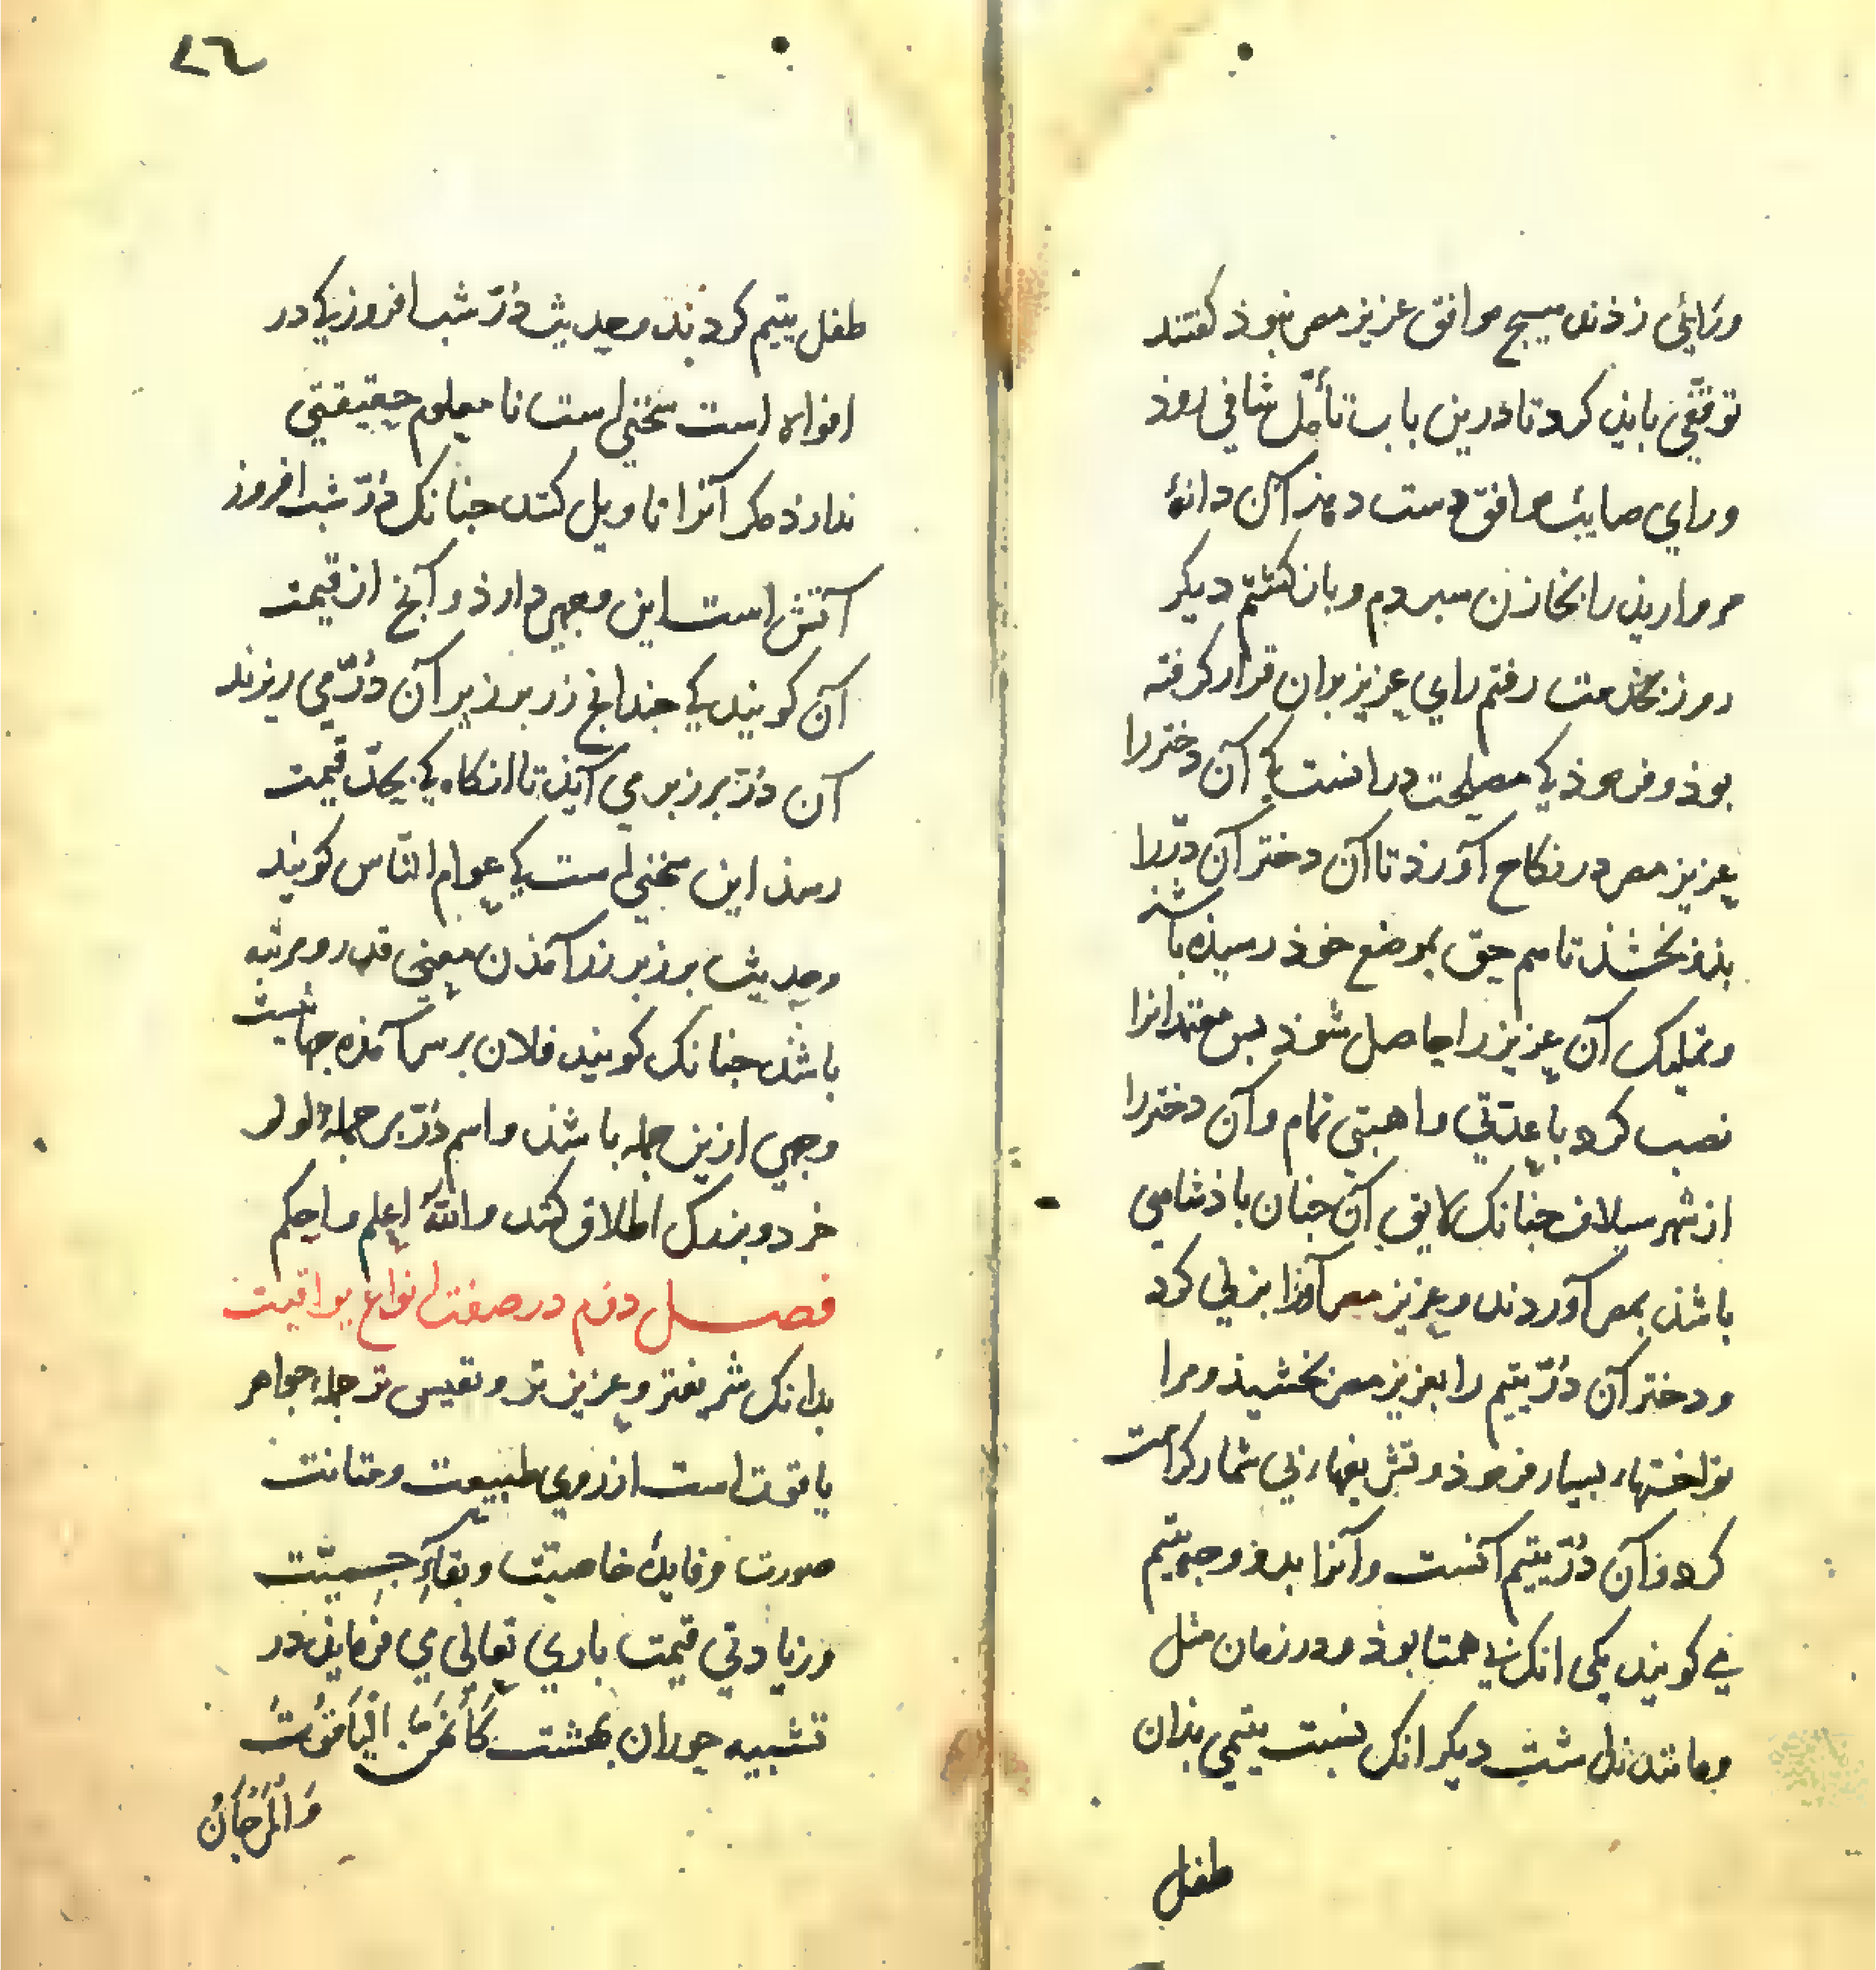 ورائی زذند هیچ موافق عزیز مصر نبوذ گفتند
توقفی بایذ کرد تا درین باب تأمل شافی روذ
ورای صایب موافق دست دهذ آن دانهٔ
مروارید را بخازن سپردم و بازگشتم دیگر
روز بخدمت رفتم رای عزیز بران قرار گرفته
بوذ و فرموذ کی مصلحت درانست کی آن دختر را
عزیز مصر در نکاح آورذ تا آن دختر آن درّ را
بذو بخشذ تا هم حق بموضع خوذ رسیذه باشذ
و تملیک آن عزیز را حاصل شوذ بس معتمدانرا
نصب کرد با عدّتی و اهبتی تمام و آن دختر را
از شهر سیلاف جنانک لایق آن جنان باذشاهی
باشذ بمصر آوردند و عزیز مصر آنرا بزنی کرد
و دختر آن درّ یتیم را بعزیز مصر بخشیذ و مرا
نواختهاء بسیار فرموذ و تشریفهاء بی شمار کرامت
کرد و آن درّ یتیم آنست و آنرا بدو وجه یتیم
می گویند یکی انک بی همتا بوذ و در زمان مثل
و مانند نداشت دیگر انک نسبت یتیمی بذان
طفل
۲۶
طفل یتیم کردند و حدیث درّ شب افروز کی در
افواه است سخنی است نامعلوم حقیقتی
ندارذ مگر آنرا تاویل کنند جنانک درّ شب افروز
آتش است این وجهی دارذ و آنج از قیمت
آن گویند کی جندانج زر بر زبر آن درّ می ریزند
آن درّ بر زبر می آیذ تا انگاه کی بحدّ قیمت
رسذ این سخنی است کی عوام الناس گویند
و حدیث بر زبر زر آمذن معنی قدر و مرتبه
باشذ جنانک گویند فلان بر سر آمذه جهانست
وجهی ازین جمله باشذ و اسم درّ بر جملهٔ لولو
خرد و بزرگ اطلاق کنند والله اعلم واحکم
فصل دوم در صفت انواع یواقیت
بدانک شریفتر و عزیزتر و نفیس تر جمله جواهر
یاقوت است از روی طبیعت و متانت
صورت و فایدهٔ خاصیت و بقاء جسمیّت
و زیادتی قیمت باری تعالی می فرمایذ در
تشبیه حوران بهشت كَأَنَّهُنَّ الْيَاقُوتُ
وَالْمَرْجَانُ